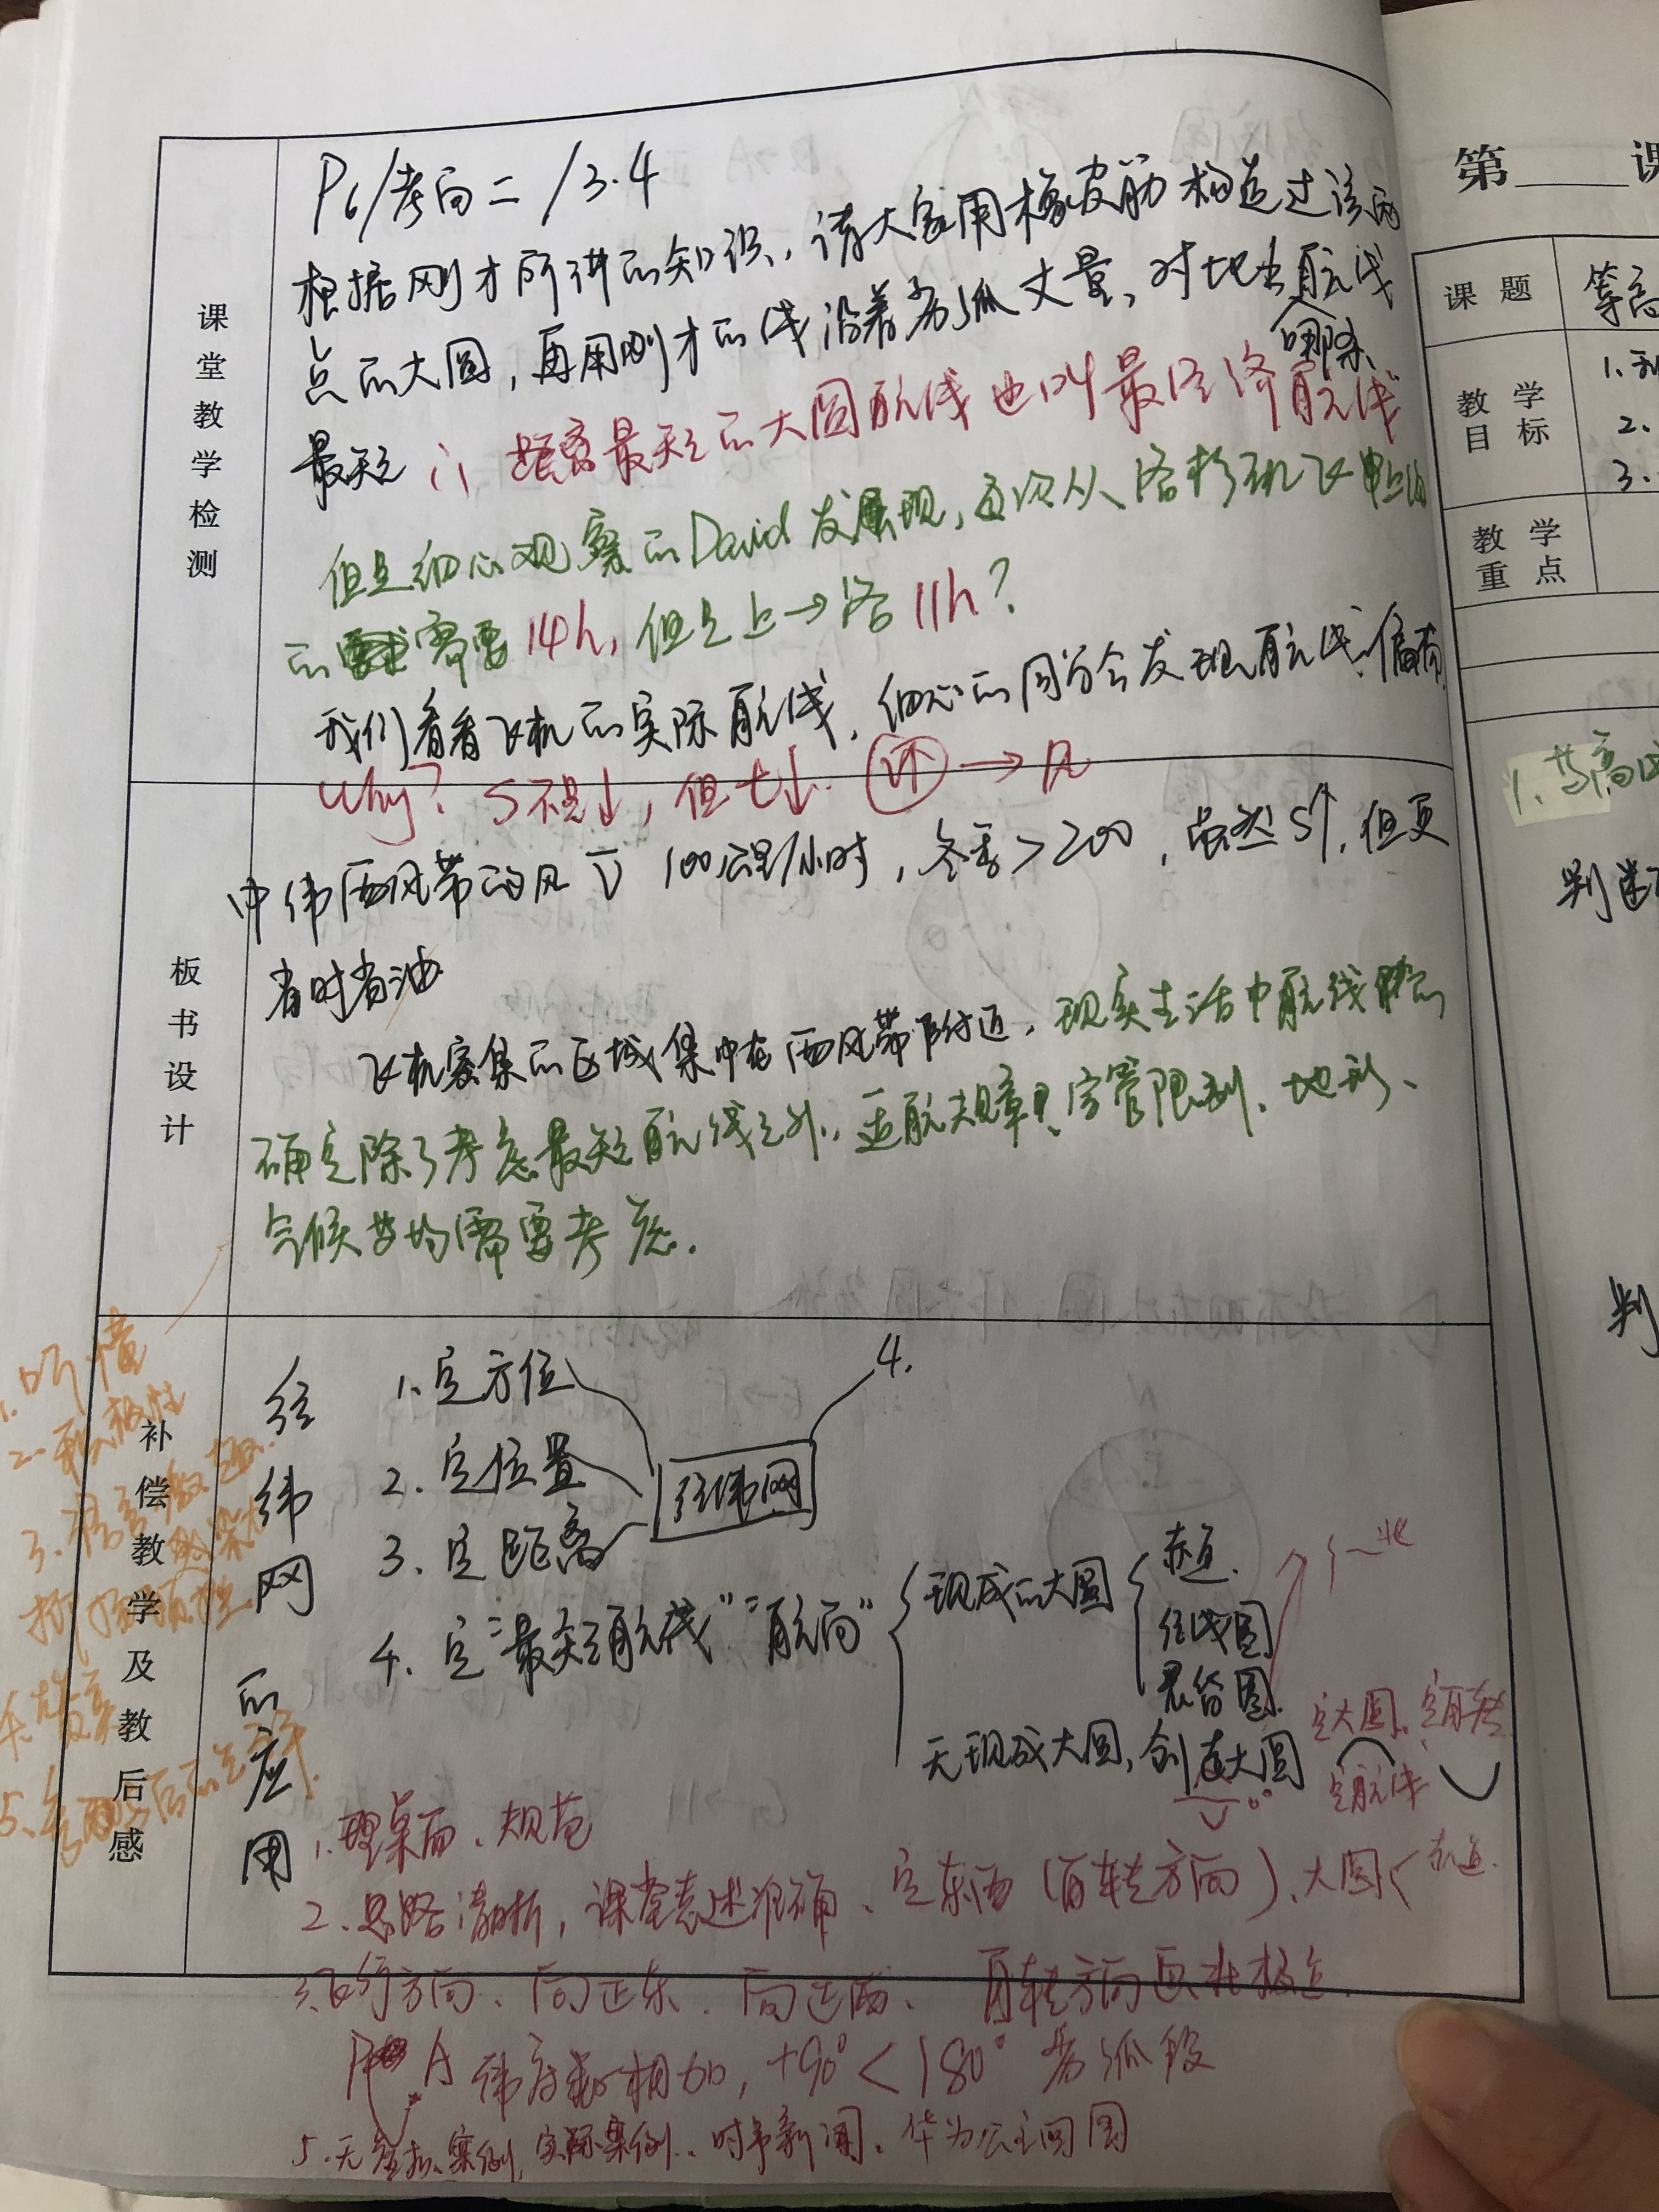 课堂教学检测
P6/考向二/3.4
根据刚才所讲的知识，请大家用橡皮筋构造过该两
点的大圆，再用刚才的线沿着劣弧丈量，对比出航线
哪条
最短；距离最短的大圆航线也叫最经济航线
但是细心观察的David发现，这次从洛杉矶飞
的需要14h，但是上→洛11h？
我们看看飞机的实际航线，细心的同学会发现航线偏南
Why？S不是↓，但t↓. →风
板书设计
中纬西风带的风 100公里/小时，冬季>200，虽然S↑，但更
省时省油
飞机密集的区域集中在西风带附近，现实生活中航线的
确定除了考虑最短航线之外，巡航规章、空管限制、地形、
气候等均需要考虑.
补偿教学及教后感
1.听懂
2.积极性
3.语言
5.
经纬网的应用
1.定方位
2.定位置
3.定距离
4.定"最短航线""航向"
经纬网
4.
现成的大圆
赤道.
经线圈
晨昏圈.
无现成大圆，创造大圆
定大圆、定自转
定航线
1.理桌面、规范
2.思路清晰，课堂表述准确、定东西（自转方向）、大圆<赤道.
3.飞行方向、向正东、向正西、自转方向 北极点.
A 纬度数相加，+90°<180° 劣弧段
5.无 案例，实际案例、时事新闻、华为公主回国
第____课
课题
等高
教学目标
1.
2.
3.
教学重点
1.等高
判断
判